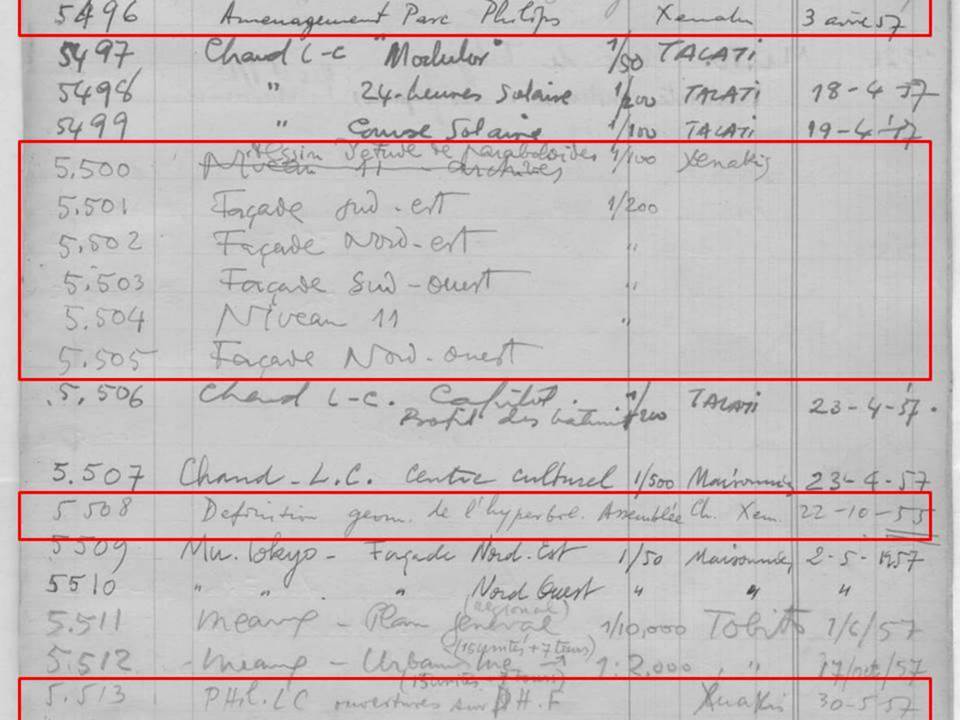 5496 Amenagement Parc Philips Xenakis 3 avril 57
5497 Chand L-C "Modulor" 1/50 TALATI
5498 " 24-heures Solaire 1/200 TALATI 18-4-57
5499 " Course Solaire 1/100 TALATI 19-4-57
dessin d'etude de paraboloides
5.500 Niveau 11 archives 1/100 Xenakis
5.501 Façade sud-est 1/200
5.502 Façade Nord-est "
5.503 Façade Sud-ouest "
5.504 Niveau 11 "
5.505 Façade Nord-ouest
5.506 Chand L-C. Capitol. 1/200 TALATI 23-4-57.
Profil des batiments
5.507 Chand. L.C. Centre culturel 1/500 Maisonnier 23-4-57
5508 Definition geom. de l'hyperbol. Assemblée Ch. Xen. 22-10-55
5509 Mu. Tokyo - Façade Nord.Est 1/50 Maisonnier 2-5-1957
5510 " " . " Nord Ouest " " "
(regional)
5.511 Meaux - Plan general 1/10,000 Tobito 1/6/57
(15 unités + 7 tours)
5.512 - Meaux - Urbanisme → 1:2.000 " " 17/oct/57
5.513 PHil. LC ouvertures sur PH.F Xenakis 30-5-57